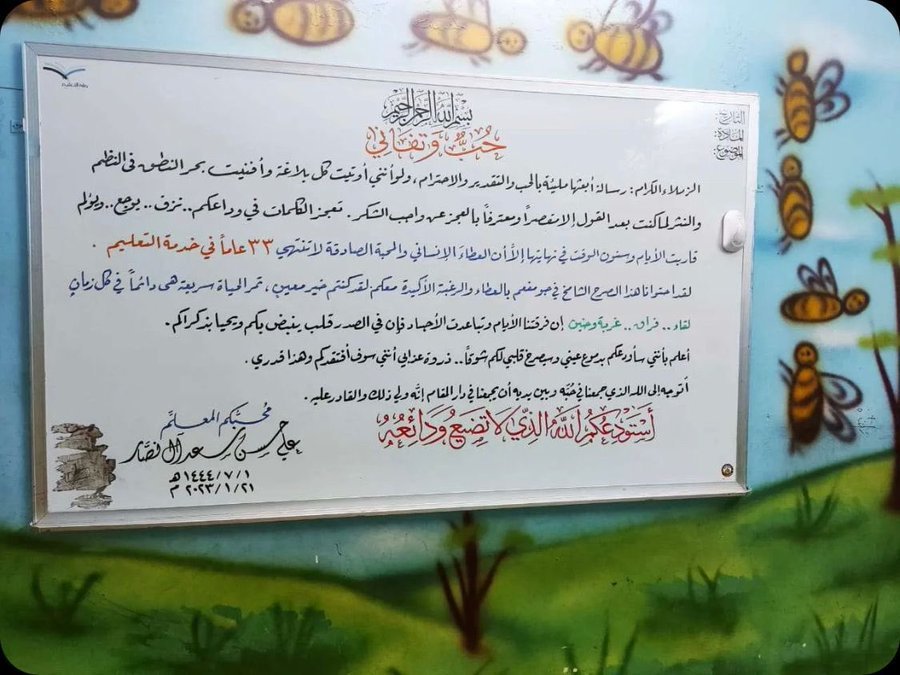 بسم الله الرحمن الرحيم
حُبٌّ وَتفاني
التاريخ:
المادة:
الموضوع:
الزملاء الكرام: رسالة أبعثها مليئة بالحب والتقدير والاحترام، ولو أنني أوتيت كل بلاغة وأفنيت بحر النطق في النظم
والنثر لما كنت بعد القول إلا مقصراً ومعترفاً بالعجز عن واجب الشكر. تعجز الكلمات في وداعكم.. نزف.. يوجع.. ويؤلم
قاربت الأيام وسنون الوقت في نهايتها إلا أن العطاء الإنساني والمحبة الصادقة لا تنتهي ٣٣ عاماً في خدمة التعليم .
لقد احتوانا هذا الصرح الشامخ في جو مفعم بالعطاء والرغبة الأكيدة معكم لقد كنتم خير معين، تمر الحياة سريعة هي دائماً في كل زمانٍ
لقاء.. فراق.. غربة وحنين إن فرقتنا الأيام وتباعدت الأجساد فإن في الصدر قلب ينبض بكم ويحيا بذكراكم.
أعلم بأنني سأودعكم بدموع عيني وسيصرخ قلبي لكم شوقاً.. ذروة عذابي أنني سوف أفتقدكم وهذا قدري.
أتوجه إلى الله الذي جمعنا في حبّه وبين يديه أن يجمعنا في دار المقام إنّه ولي ذلك والقادر عليه.
أستودعكم الله الذي لا تضيع ودائعه
محبّكم المعلم
علي حسن سعد آل نصّار
١٤٤٤/٧/١ هـ
٢٠٢٣/١/٢١ م